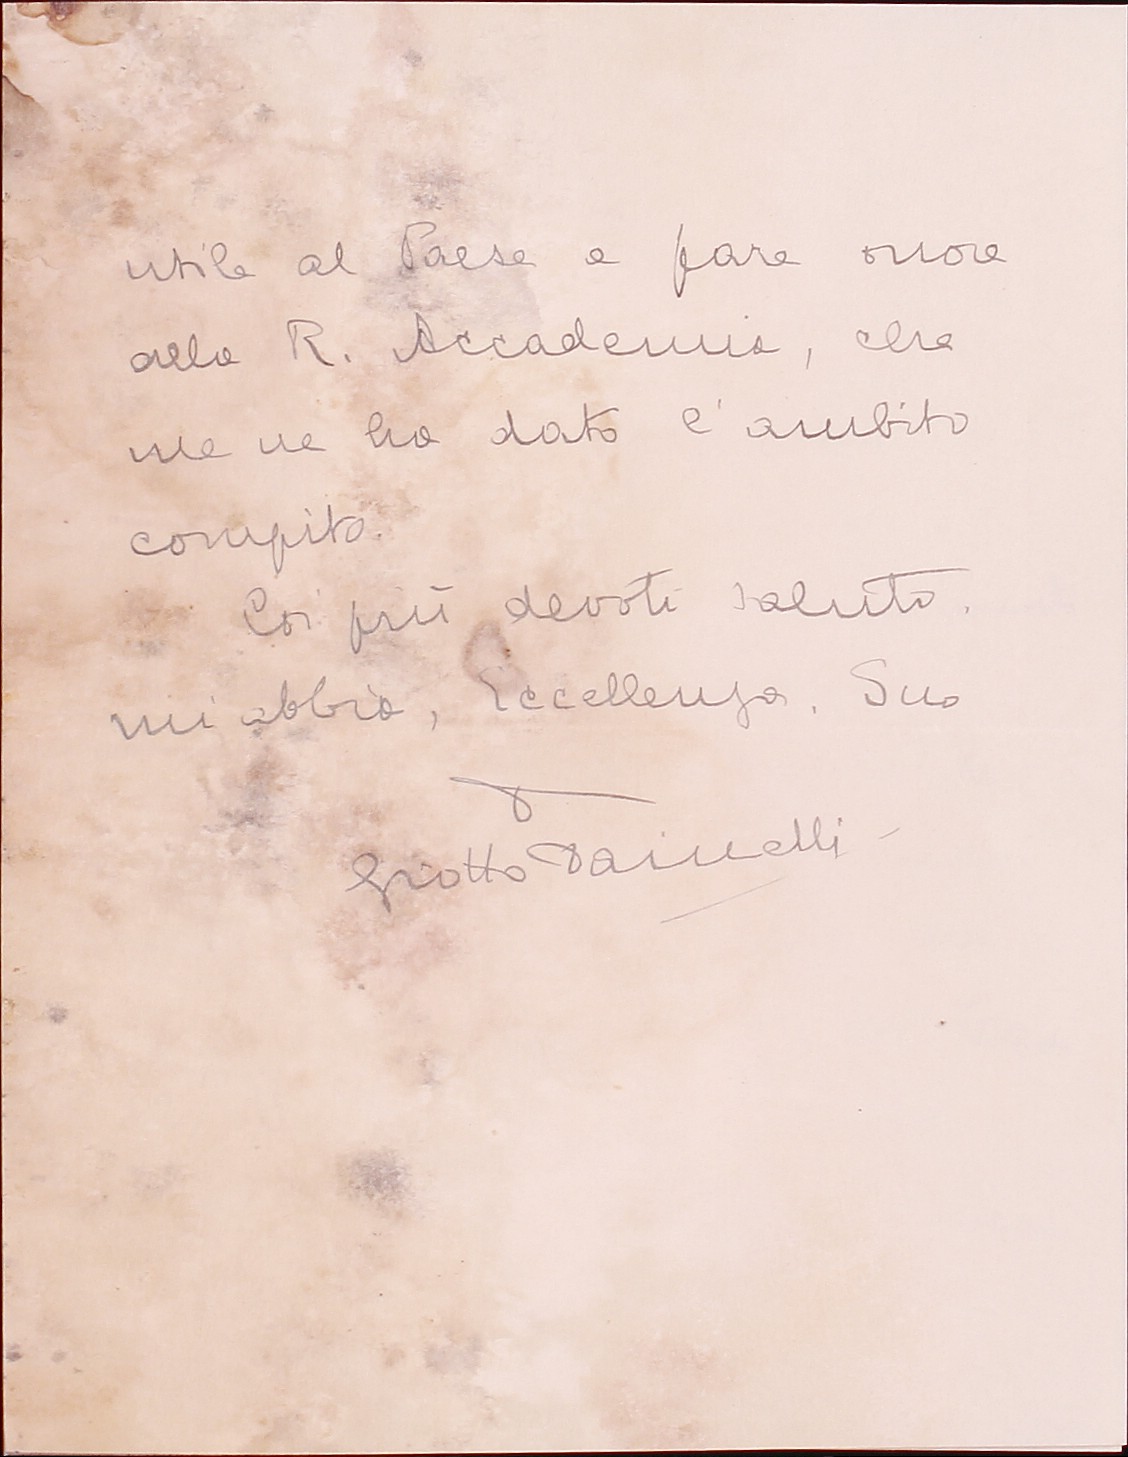 utile al Paese e fare onore
alla R. Accademia, che
me ne ha dato l'ambito
compito.
Coi più devoti saluti.
mi abbia, Eccellenza, Suo
Giotto Dainelli